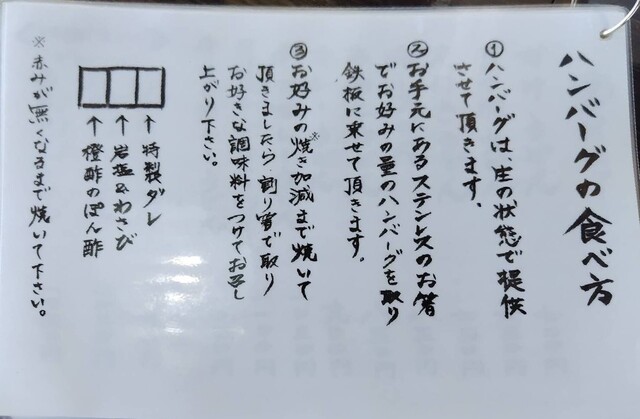 ハンバーグの食べ方
①ハンバーグは、生の状態で提供
させて頂きます。
②お手元にあるステンレスのお箸
でお好みの量のハンバーグを取り
鉄板に乗せて頂きます。
③お好みの焼き加減※まで焼いて
頂きましたら、割り箸で取り
お好きな調味料をつけてお召し
上がり下さい。
↑特製ダレ
↑岩塩&わさび
↑橙酢のぽん酢
※赤みが無くなるまで焼いて下さい。